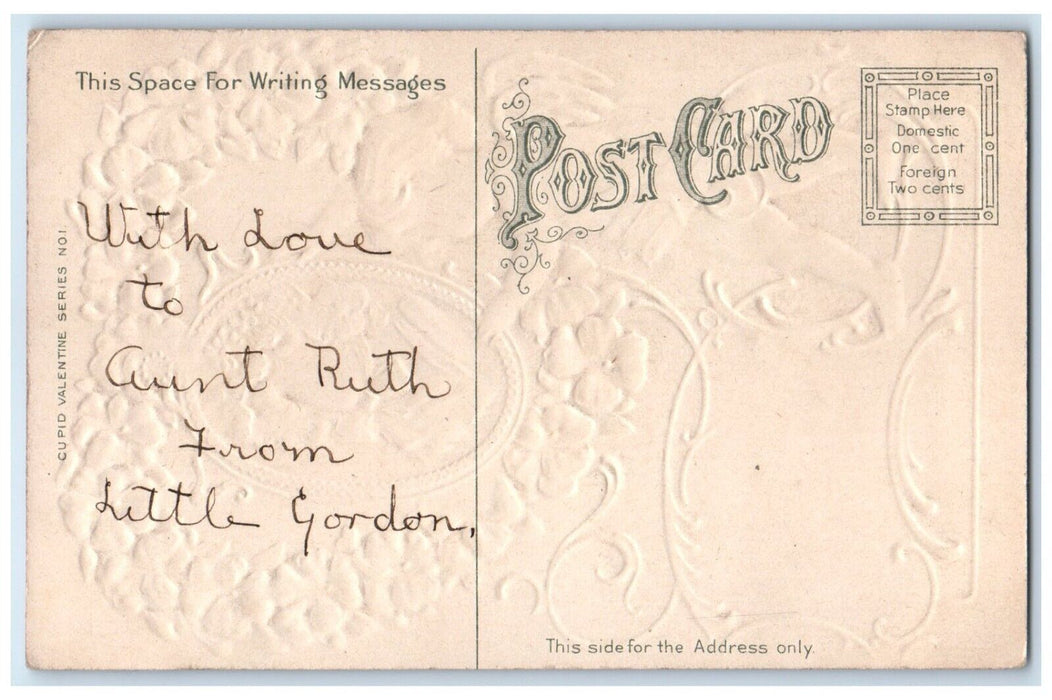 This Space For Writing Messages
With Love
to
Aunt Ruth
From
Little Gordon,
CUPID VALENTINE SERIES NO.1
POST CARD
Place
Stamp Here
Domestic
One cent
Foreign
Two cents
This side for the Address only.